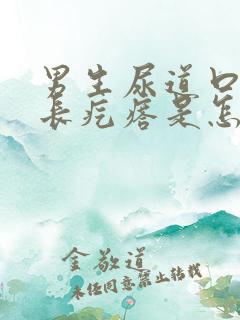 男生尿道口
长疙瘩是怎
金敬道
未经同意禁止转载